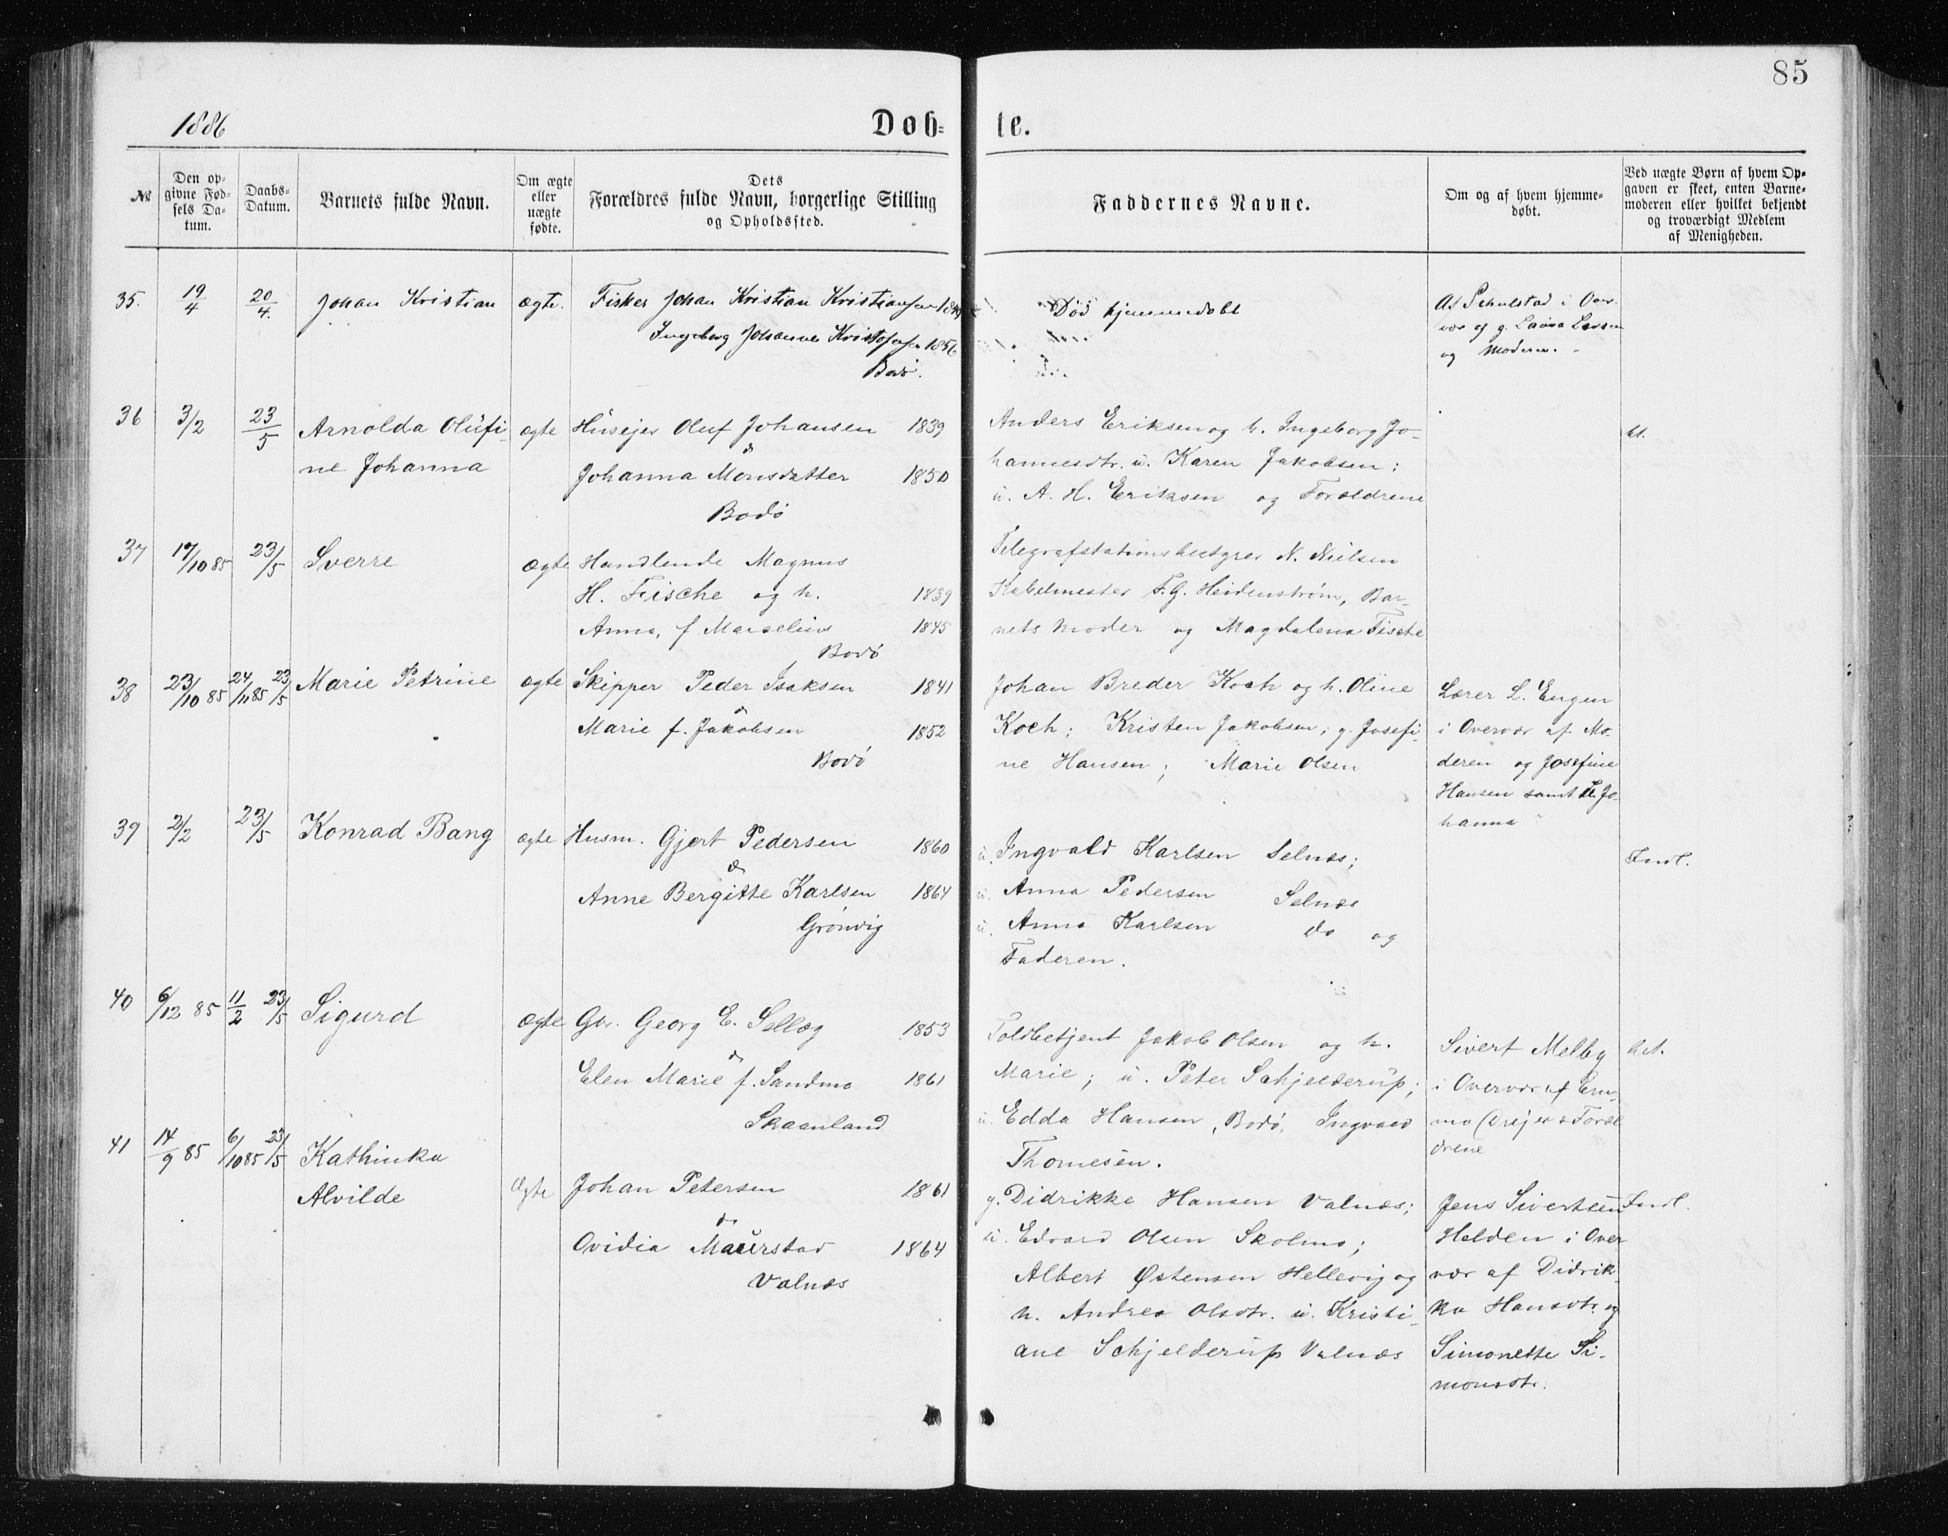 85
1886
Døb= te.
№
Den op-
givne Fød-
sels Da-
tum.
Daabs-
Datum.
Barnets fulde Navn.
Om ægte
eller
uægte
fødte.
Dets
Forældres fulde Navn, borgerlige Stilling
og Opholdssted.
Faddernes Navne.
Om og af hvem hjemme-
døbt.
Ved uægte Børn af hvem Op-
gaven er skeet, enten Barne-
moderen eller hvilket bekjendt
og troværdigt Medlem
af Menigheden.
35. 19/4 20/4. Johan Kristian ægte. Fisker Johan Kristian Kristiansen
Ingeborg Johanne 1856
Bodø.
Død hjemmedøbt
Af Schulstad i Over-
vær af g. Lavra Larsen
og Moderen.
36 3/2 23/5 Arnolda Olufi-
ne Johanna
ægte Husejer Oluf Johansen 1839
&
Johanna Monsdatter 1850
Bodø
Anders Eriksen og h. Ingeborg Jo-
hannesdtr. u. Karen Jakobsen;
u. A. H. Eriksen og Forældrene
37 17/10 85 23/5 Sverre ægte Handlende Magnus
H. Fische og h. 1839
Anna, f. Marselius 1845
Bodø
Telegrafstationsbestyrer N. Nielsen
Kabelmester F. G. Heidenstrøm, Bar-
nets Moder og Magdalena Fische
38 23/10 85 24/11 85 23/5 Marie Petrine ægte Skipper Peder Isaksen 1841
&
Marie f. Jakobsen 1852
Bodø
Johan Breder Koch og h. Oline
Koch; Kristen Jakobsen; g. Josefi-
ne Hansen; Marie Olsen
Lærer L. Engen
i Overvær af Mo-
deren og Josefine
Hansen samt Jo-
hanna
39 2/2 23/5 Konrad Bang ægte Husm. Gjert Pedersen 1860
&
Anne Bergitte Karlsen 1864
Grønvig
u. Ingvald Karlsen Selnæs;
u. Anna Pedersen Selnæs
u. Anna Karlsen do og
Faderen.
Indl.
40 6/12 85 11/2 23/5 Sigurd ægte Gbr. Georg E. Sellæg 1853
&
Elen Marie f. Sandmo 1861
Skaanland
Toldbetjent Jakob Olsen og h.
Marie; u. Peter Schjelderup;
u. Edda Hansen, Bodø. Ingvald
Thomesen.
Sivert Melby
i Overvær af Em-
ma Drejer & Foræl-
drene
41 14/9 85 6/10 85 23/5 Kathinka
Alvilde
Ægte Johan Petersen 1861
&
Ovidia Maurstad 1864
Valnæs
g. Didrikke Hansen Valnæs;
u. Edvard Olsen Skolmo;
Albert Østensen Hellevig og
h. Andrea Olsdtr. u. Kristi-
ane Schjelderup Valnæs
Jens Sivertsen
Halden i Over
vær af Didrik-
ka Hansdtr. og
Simonette Si-
monsdtr.
Indl.